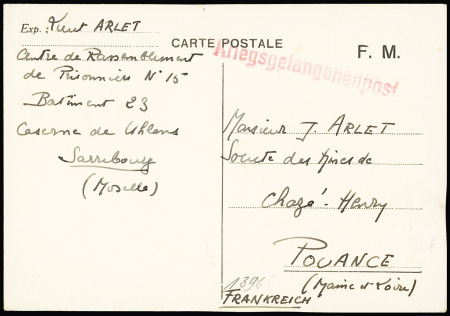 CARTE POSTALE
F. M.
Kriegsgefangenenpost
Exp.: Kurt ARLET
Centre de Rassemblement
de Prisonniers N° 15
Batiment 23
Caserne de Uhlans
Sarrebourg
(Moselle)
Monsieur J. ARLET
Societe des Mines de
Chazé-Henry
POUANCE
(Maine et Loire)
1396
FRANKREICH